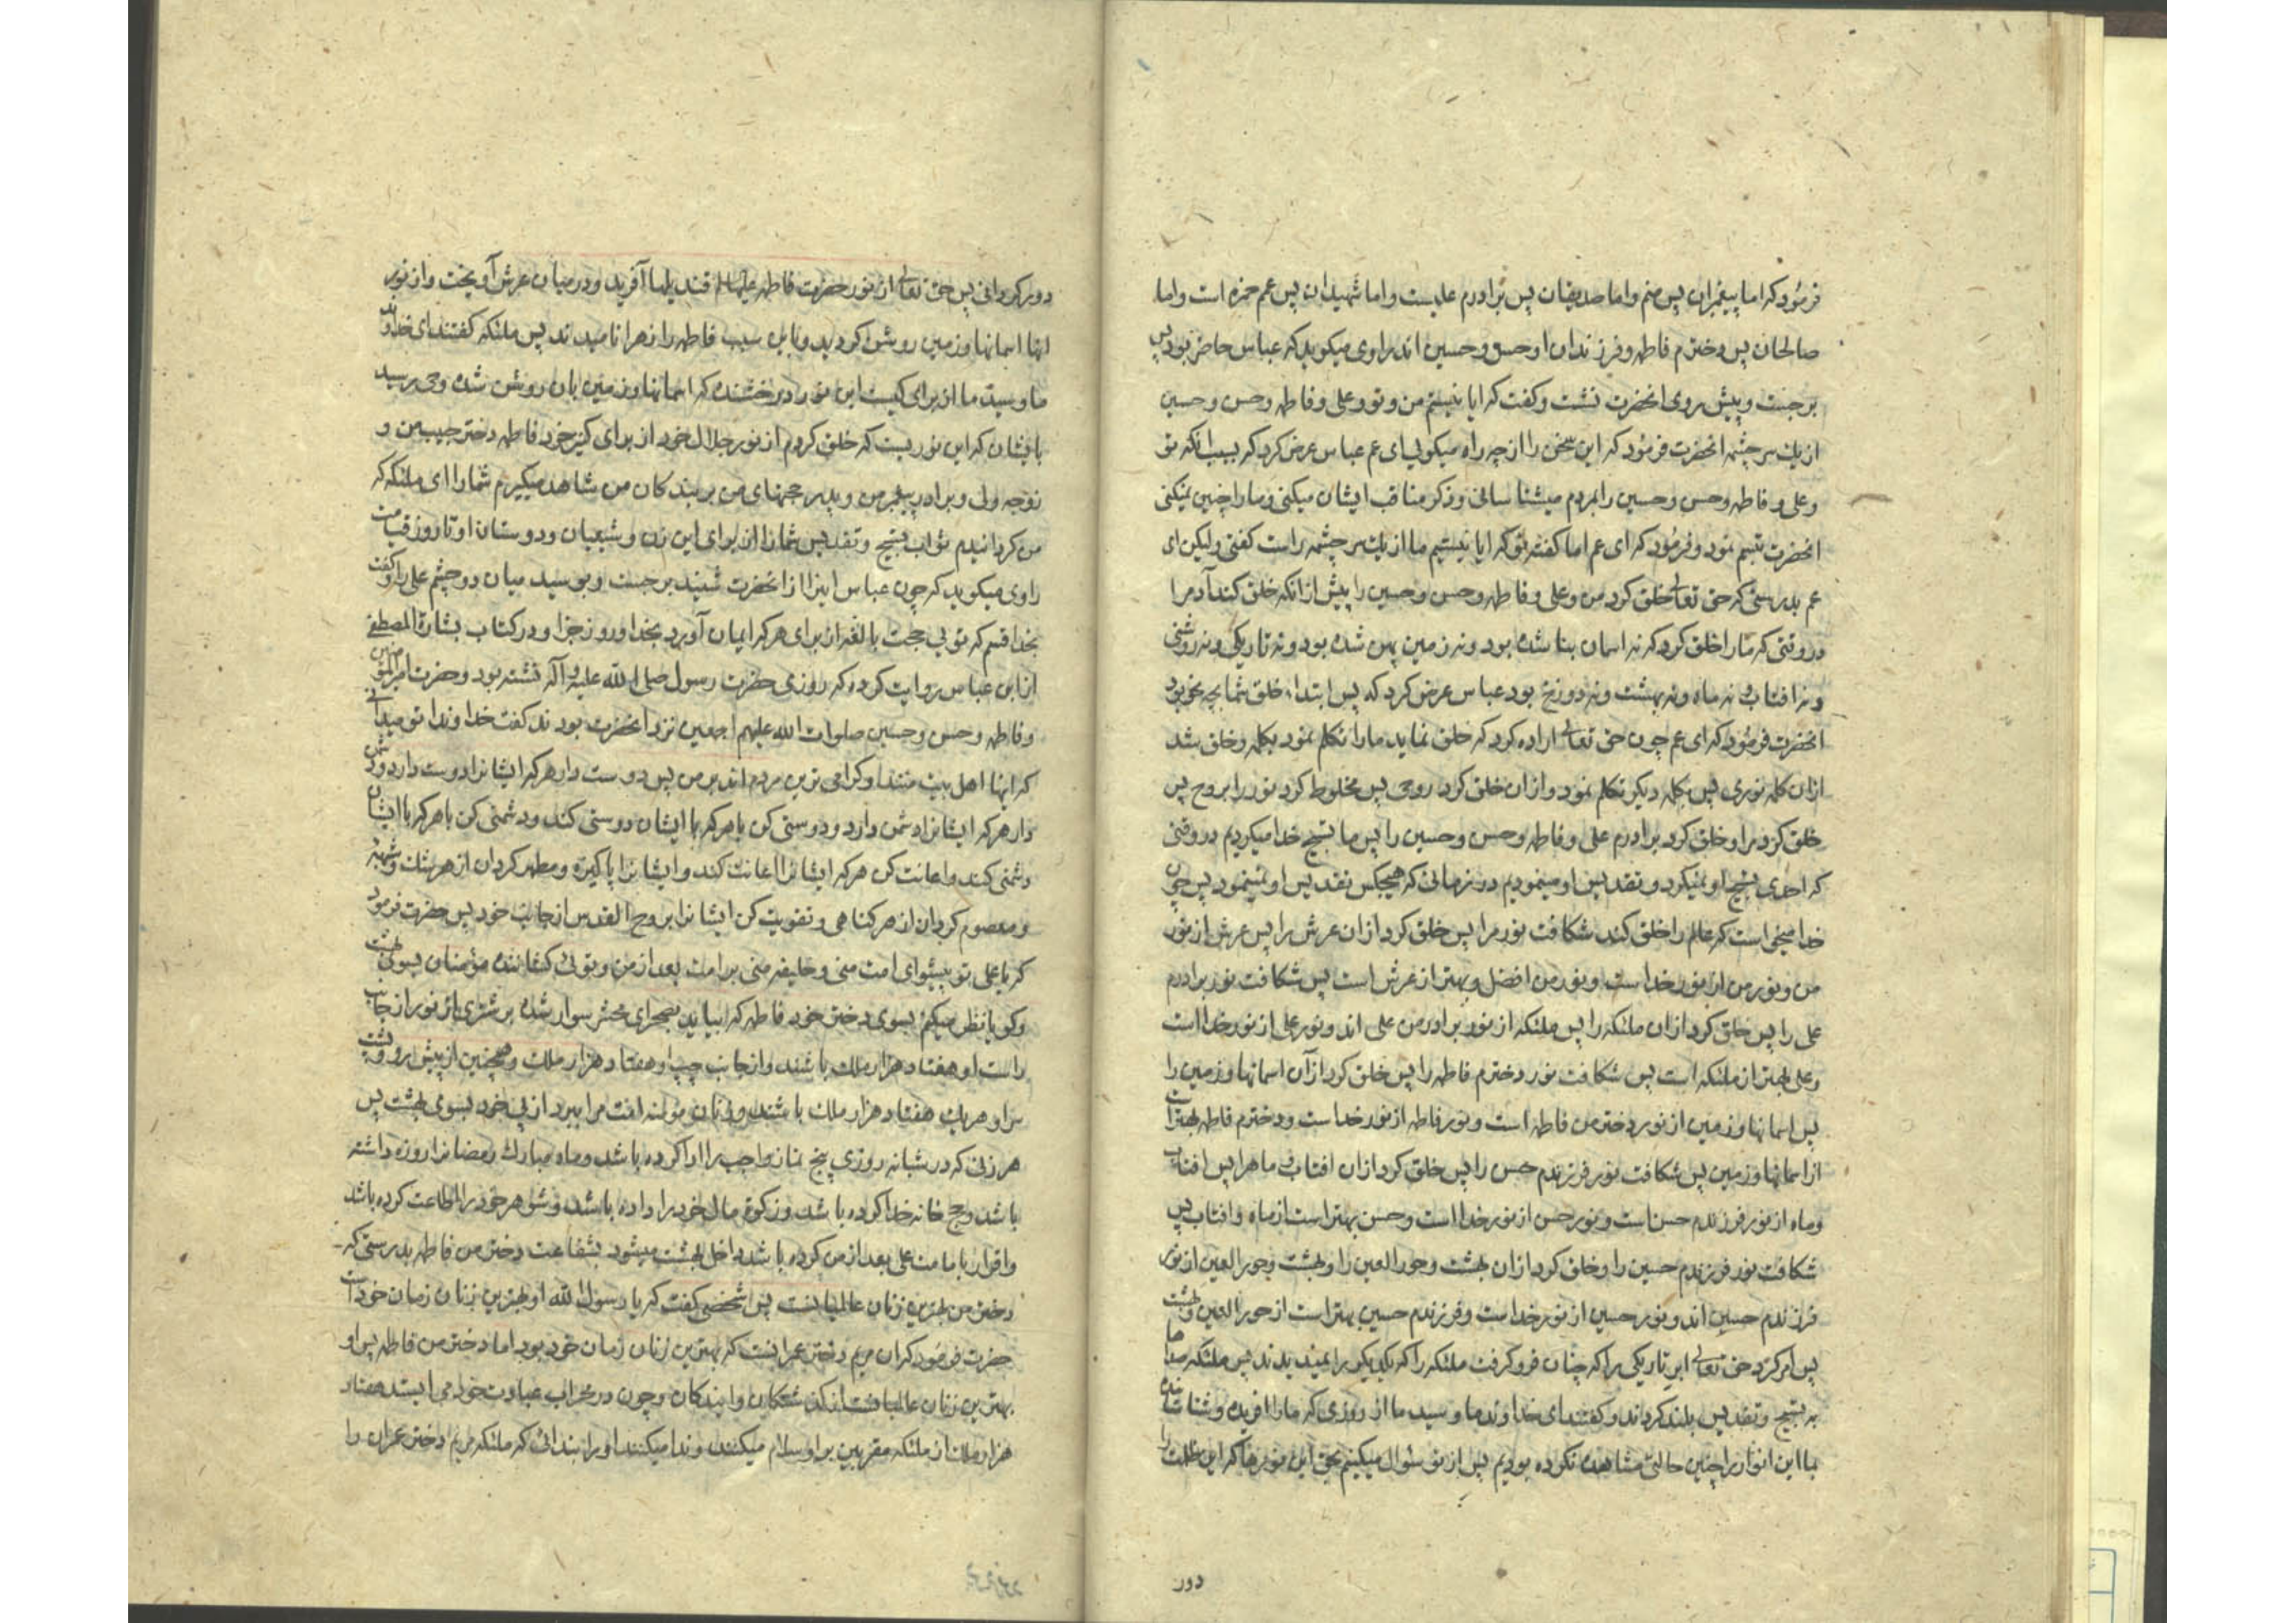 فرمود که اما پیغمبران پس منم و اما صدیقان پس برادرم علیست و اما شهیدان پس عم حمزه است و اما
صالحان پس دخترم فاطمه و فرزندان او حسن و حسین اند راوی میکوید که عباس حاضر بود پس
برجست و پیش روی انحضرت نشست و کفت که ایا نیستیم من و تو و علی و فاطمه و حسن و حسین
از یک سر چشمه انحضرت فرمود که این سخن را از چه راه میکویی ای عم عباس عرض کرد که بسبب انکه تو
و علی و فاطمه و حسن و حسین را بمردم میشناسانی و ذکر مناقب ایشان میکنی و ما را چنین نمیکنی
انحضرت تبسم نمود و فرمود که ای عم اما کفته تو که ایا نیستیم ما از یک سر چشمه راست کفتی ولیکن ای
عم بدرستی که حق تعالی خلق کرد من و علی و فاطمه و حسن و حسین را پیش از انکه خلق کند آدم را
در وقتی که ما را خلق کرد که نه اسمان بنا شده بود و نه زمین پهن شده بود و نه تاریکی و نه روشنی
و نه افتاب و نه ماه و نه بهشت و نه دوزخ بود عباس عرض کرد که پس ابتداء خلق شما بچه نحو بود
انحضرت فرمود که ای عم چون حق تعالی اراده کرد که خلق نماید ما را تکلم نمود بکلمه و خلق شد
ازان کلمه نوری پس بکلمه دیکر تکلم نمود و ازان خلق کرد روحی پس مخلوط کرد نور را بروح پس
خلق کرد مرا و خلق کرد برادرم علی و فاطمه و حسن و حسین را پس ما تسبیح خدا میکردیم در وقتی
که احدی تسبیح او نمیکرد و تقدیس او مینمودیم در زمانی که هیچکس تقدیس او نمینمود پس چون
خدا میخواست که عالم را خلق کند شکافت نور مرا پس خلق کرد ازان عرش را پس عرش از نور
من و نور من از نور خداست و نور من افضل و بهتر از عرش است پس شکافت نور برادرم
علی را پس خلق کرد ازان ملئکه را پس ملئکه از نور برادر من علی اند و نور علی از نور خدا است
و علی بهتر از ملئکه است پس شکافت نور دخترم فاطمه را پس خلق کرد ازآن اسمانها و زمین را
پس اسمانها و زمین از نور دختر من فاطمه است و نور فاطمه از نور خداست و دخترم فاطمه بهتر است
از اسمانها و زمین پس شکافت نور فرزندم حسن را پس خلق کرد ازان افتاب و ماه را پس افتاب
و ماه از نور فرزندم حسن است و نور حسن از نور خدا است و حسن بهتر است از ماه و افتاب پس
شکافت نور فرزندم حسین را و خلق کرد ازان بهشت و حور العین را و بهشت و حور العین از نور
فرزندم حسین اند و نور حسین از نور خداست و فرزندم حسین بهتر است از حور العین و بهشت
پس امر کرد حق تعالی ابر تاریکی را که چنان فرو کرفت ملئکه را که یکدیکر را نمیدیدند پس ملئکه صدا
به تسبیح و تقدیس بلند کردند و کفتند ای خداوند ما و سید ما از روزی که ما را افریدی و شناساندی
بما این انوار را چنین حالتی مشاهده نکرده بودیم پس از تو سؤال میکنیم بحق این نورها که این ظلمت را
دور
دور کردانی پس حق تعالی از نور حضرت فاطمه علیها السلم قندیلها آفرید و در میان عرش آویخت و از نور
انها اسمانها و زمین روشن کردید و باین سبب فاطمه را زهرا نامیدند پس ملئکه کفتند ای خداوند
ما و سید ما از برای کیست این نور درخشنده که اسمانها و زمین بان روشن شده وحی رسید
بایشان که این نوریست که خلق کردم از نور جلال خود از برای کنیز خود فاطمه دختر حبیب من و
زوجه ولی و برادر پیغمبر من و پدر حجتهای من بر بندکان من شاهد میکیرم شما را ای ملئکه که
من کردانیدم ثواب تسبیح و تقدیس شما را از برای این زن و شیعیان و دوستان او تا روز قیامت
راوی میکوید که چون عباس اینرا از انحضرت شنید برجست و بوسید میان دو چشم علی را و کفت
بخدا قسم که تویی حجت بالغه از برای هر که ایمان آورد بخدا و روز جزا و در کتاب بشارة المصطفی
از ابن عباس روایت کرده که روزی حضرت رسول صلی الله علیه و آله نشسته بود و حضرت امیر المؤمنین
و فاطمه و حسن و حسین صلوات الله علیهم اجمعین نزد انحضرت بودند کفت خداوندا تو میدانی
که اینها اهل بیت منند و کرامی ترین مردم اند بر من پس دوست دار هر که ایشانرا دوست دارد و دشمن
دار هر که ایشانرا دشمن دارد و دوستی کن با هر که با ایشان دوستی کند و دشمنی کن با هر که با ایشان
دشمنی کند و اعانت کن هر که ایشانرا اعانت کند و ایشانرا پاکیزه و مطهر کردان از هر شک و شبهه
و معصوم کردان از هر کناهی و تقویت کن ایشانرا بروح القدس از جانب خود پس حضرت فرمود
که یا علی تو پیشوای امت منی و خلیفه منی بر امت بعد از من و تویی کشاننده مؤمنان بسوی بهشت
و کویا نظر میکنم بسوی دختر خود فاطمه که بیاید بصحرای محشر سوار شده بر شتری از نور از جانب
راست او هفتاد هزار ملک باشند و از جانب چپ او هفتاد هزار ملک و همچنین از پیش رو و پشت
سر او هر یک هفتاد هزار ملک باشند و زنان مؤمنه امت مرا ببرد از پی خود بسوی بهشت پس
هر زنی که در شبانه روزی پنج نماز واجب را ادا کرده باشد و ماه مبارک رمضانرا روزه داشته
باشد و حج خانه خدا کرده باشد و زکوة مال خود را داده باشد و شوهر خود را اطاعت کرده باشد
و اقرار بامامت علی بعد از من کرده باشد داخل بهشت میشود بشفاعت دختر من فاطمه بدرستی که
دختر من بهترین زنان عالمیانست پس شخصی کفت که یا رسول الله او بهترین زنان زمان خود است
حضرت فرمود که ان مریم دختر عمرانست که بهترین زنان زمان خود بود اما دختر من فاطمه پس او
بهترین زنان عالمیانست از کذشتکان و ایندکان و چون در محراب عبادت خود می ایستد هفتاد
هزار ملک از ملئکه مقربین بر او سلام میکنند و ندا میکنند او را بندائی که ملئکه مریم دختر عمران را